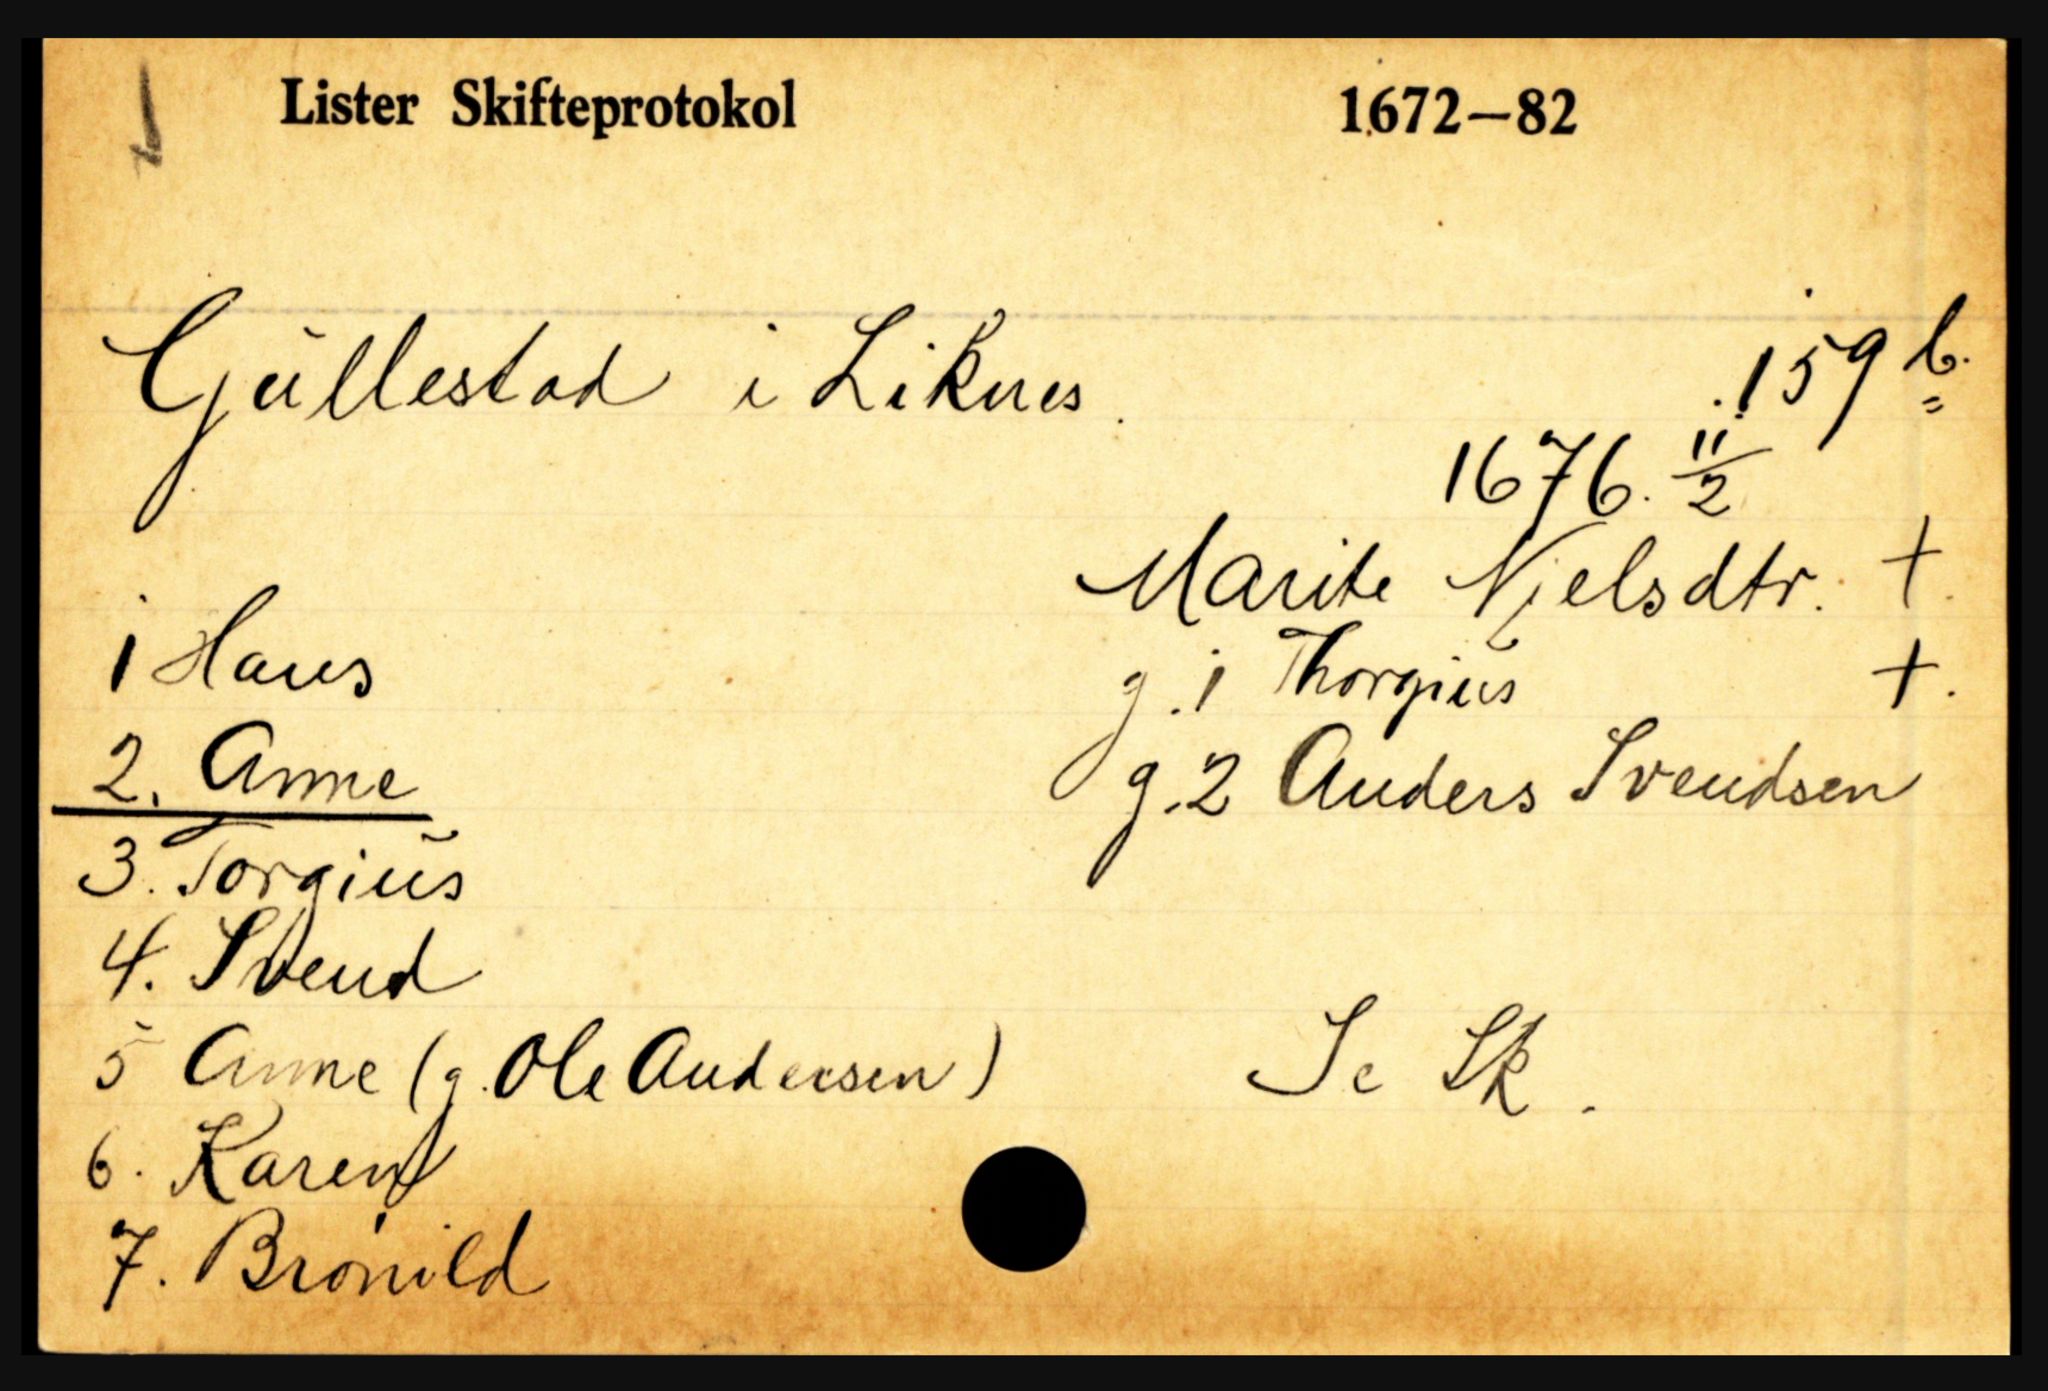 Lister Skifteprotokol 1672—82
Gjullestad i Liknes. 159 b.
1676. 11/2
Marite Njelsdtr. +.
1 Hans
g. 1 Thorgius +.
2. Anne
g. 2 Anders Svendsen
3. Torgius
4. Svend
5 Anne (g. Ole Andersen) Se Sk.
6. Karen
7. Brønild